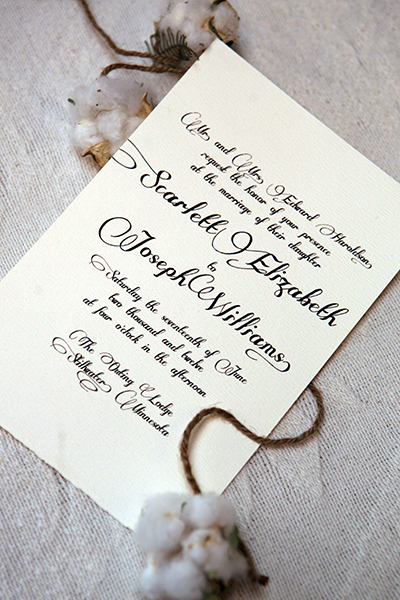 Mr. and Mrs. Edward Haroldson
request the honor of your presence
at the marriage of their daughter
Scarlett Elizabeth
to
Joseph Williams
Saturday the seventeenth of June
two thousand and twelve
at four o'clock in the afternoon
The Outing Lodge
Stillwater, Minnesota